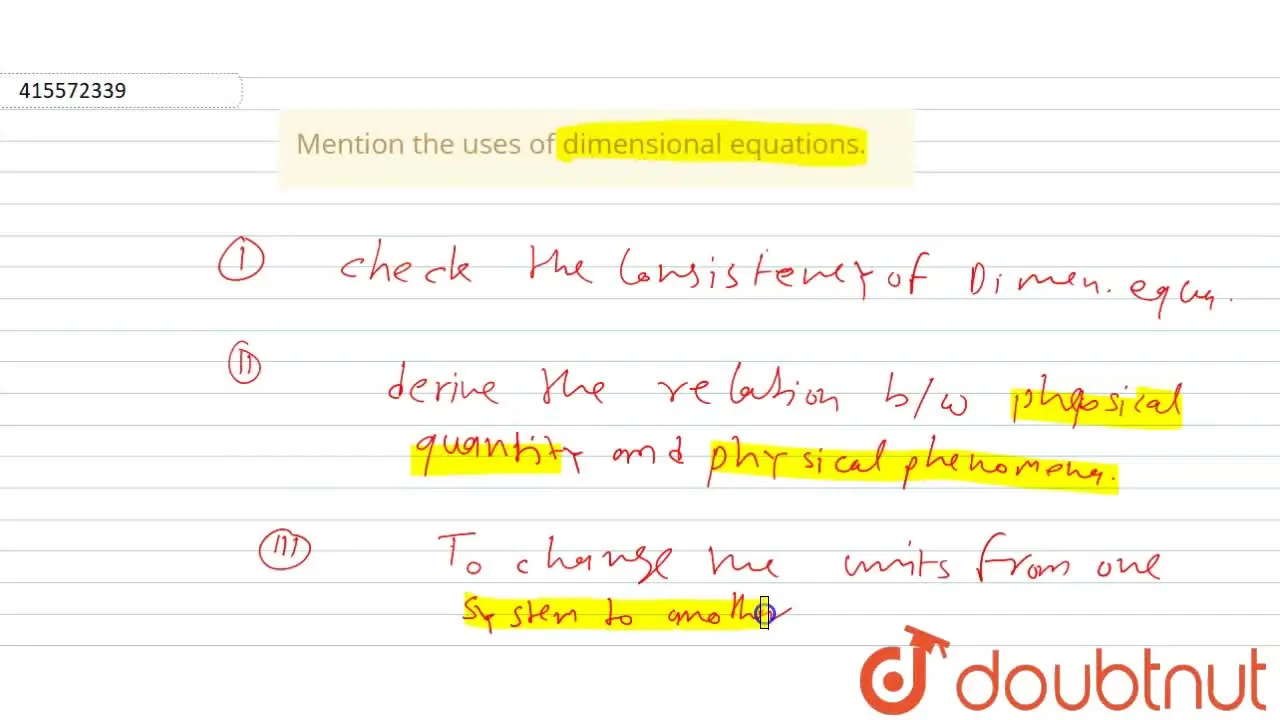 415572339
Mention the uses of dimensional equations.
I check the Consistency of Dimen. equn.
II derive the relation b/w physical
quantity and physical phenomena.
III To change the units from one
system to another
doubtnut